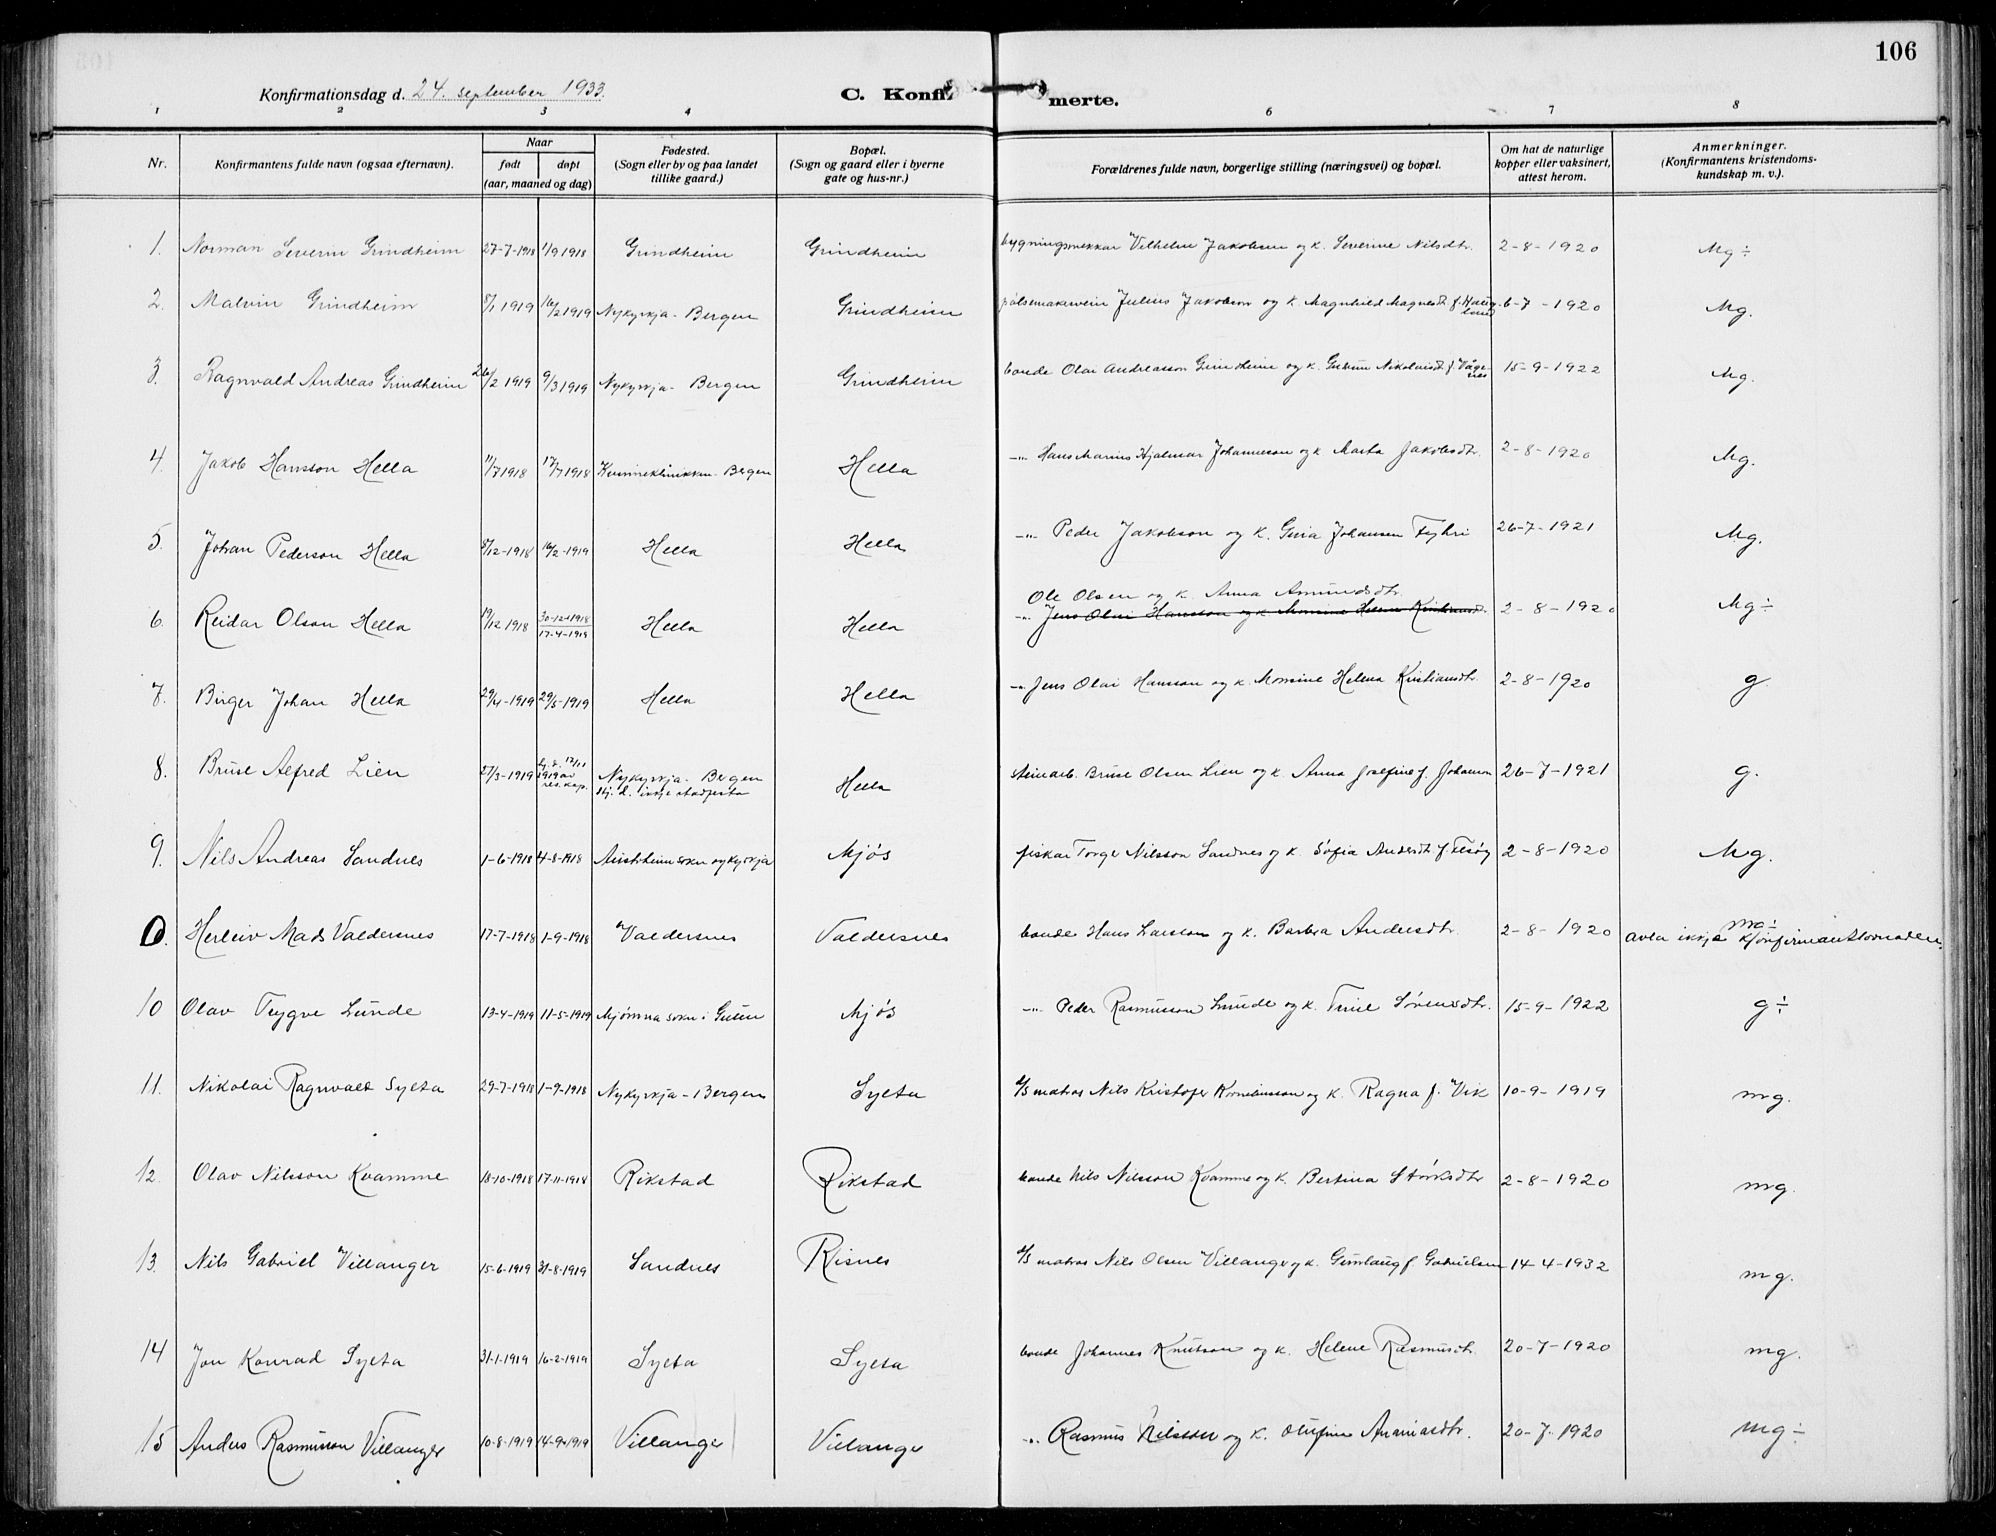 106
Konfirmationsdag d. 24. september 1933.
C. Konfirmerte.
1 2 3 4 6 7 8
Nr. Konfirmantens fulde navn (ogsaa efternavn). Naar født døpt (aar, maaned og dag) Fødested. (Sogn eller by og paa landet tillike gaard.) Bopæl. (Sogn og gaard eller i byerne gate og hus-nr.) Forældrenes fulde navn, borgerlige stilling (næringsvei) og bopæl. Om hat de naturlige kopper eller vaksinert, attest herom. Anmerkninger. (Konfirmantens kristendomskundskap m. v.).
1. Norman Severin Grindheim 27-7-1918 1/9 1918 Grindheim Grindheim bygningssnekkar Vilhelm Jakobsen og k. Severine Nilsdtr. 2-8-1920 Mg ÷
2. Malvin Grindheim 8/1 1919 16/2 1919 Nykyrkja - Bergen Grindheim Julius Jakobson og k. Magnhild Magnesdt. f. Haugland 6-7-1920 Mg.
3. Ragnvald Andreas Grindheim 26/2 1919 9/3 1919 Nykyrkja - Bergen Grindheim bonde Olai Andreasson Grindheim og k. Nikolaisdt. f. Vågenes 15-9-1922 Mg.
4. Jakob Hansson Hella 11/7 1918 17/7 1918 Kvinneklinikken - Bergen Hella -"- Hans Marius Hjalmar Johannesson og k. Marta Jakobsdtr. 2-8-1920 Mg.
5. Johan Pederson Hella 8/12-1918 16/2-1919 Hella Hella -"- Peder Jakobson og k. Gina Johansen 26-7-1921 Mg.
6. Reidar Olson Hella 19/12 1918 30-12-1918 17-4-1919 Hella Hella Ole Olsen og k. Anna Amundsdtr. 2-8-1920 Mg ÷
-"- Jens Olai Hansson og k. Monsine Helene Kristiansdt.
7. Birger Johan Hella 29/4-1919 29/5-1919 Hella Hella -"- Jens Olai Hansson og k. Monsine Helena Kristiansdtr. 2-8-1920 g.
8. Bruse Alfred Lien 27/3-1919 hj. d. 17/11 1919 av res. kap. Nykyrkja - Bergen hj. d. ikkje stadfesta Hella steinarb. Bruse Olsen Lien og k. Anna Josefine f. Johanson 26-7-1921 g.
9. Nils Andreas Sandnes 1-6-1918 4-8-1918 Austrheim sokn og kyrkja Mjøs fiskar Torger Nilsson Sandnes og k. Sofia Andersdt. 2-8-1920 Mg.
0. Herleiv Mads Valdersnes 17-7-1918 1-9-1918 Valdersnes Valdersnes bonde Hans Larsson og k. Barbra Andersdtr. 2-8-1920 mg ÷ avla ikkje konfirmantlovnaden.
10 Olav Trygve Lunde 13-4-1919 11-5-1919 Mjømna sokn i Gulen Mjøs -"- Peder Rasmusson Lunde og k. Trine Sørensdtr. 15-9-1922 g ÷
11. Nikolai Ragnvald Sylta 29-7-1918 1-9-1918 Nykyrkja - Bergen Sylta d/s matros Nils Kristofer Korneliusson og k. Ragna f. Vik 10-9-1919 mg.
12. Olav Nilsson Kvamme 18-10-1918 17-11-1918 Rikstad Rikstad bonde Nils Nilsson Kvamme og k. Bertina Størksdtr 2-8-1920 mg.
13. Nils Gabriel Villanger 15-6-1919 31-8-1919 Sandnes Risnes d/s matros Nils Olsen Villanger og k. Gunlaug f. Gabrielsen 14-4-1932 mg.
14 Jon Konrad Sylta 31-1-1919 16-2-1919 Sylta Sylta bonde Johannes Knutson og k. Helene Rasmusdtr. 20-7-1920 mg.
15 Anders Rasmusson Villanger 10-8-1919 14-9-1919 Villanger Villanger -"- Rasmus Nilsson og k. Olufine Ananiasdtr. 20-7-1920 mg ÷